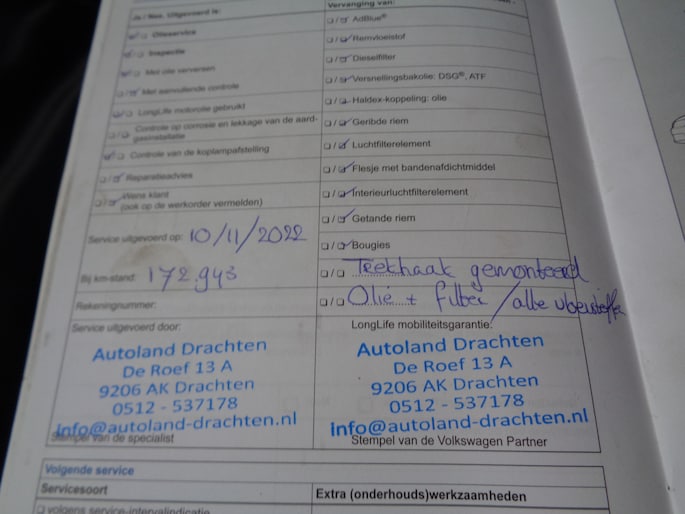 Ja / Nee, Uitgevoerd is:
Vervanging van:
Olieservice
Inspectie
Met olie verversen
Met aanvullende controle
LongLife motorolie gebruikt
Controle op corrosie en lekkage van de aard-
gasinstallatie
Controle van de koplampafstelling
Reparatieadvies
Wens klant
(ook op de werkorder vermelden)
Service uitgevoerd op: 10/11/2022
Bij km-stand: 172.943
Rekeningnummer:
AdBlue®
Remvloeistof
Dieselfilter
Versnellingsbakolie: DSG®, ATF
Haldex-koppeling: olie
Geribde riem
Luchtfilterelement
Flesje met bandenafdichtmiddel
Interieurluchtfilterelement
Getande riem
Bougies
Trekhaak gemonteerd
Olie + filter / alle vloeistoffen
Service uitgevoerd door:
Autoland Drachten
De Roef 13 A
9206 AK Drachten
0512 - 537178
info@autoland-drachten.nl
Stempel van de specialist
LongLife mobiliteitsgarantie:
Autoland Drachten
De Roef 13 A
9206 AK Drachten
0512 - 537178
info@autoland-drachten.nl
Stempel van de Volkswagen Partner
Volgende service
Servicesoort
Extra (onderhouds)werkzaamheden
volgens service-intervalindicatie